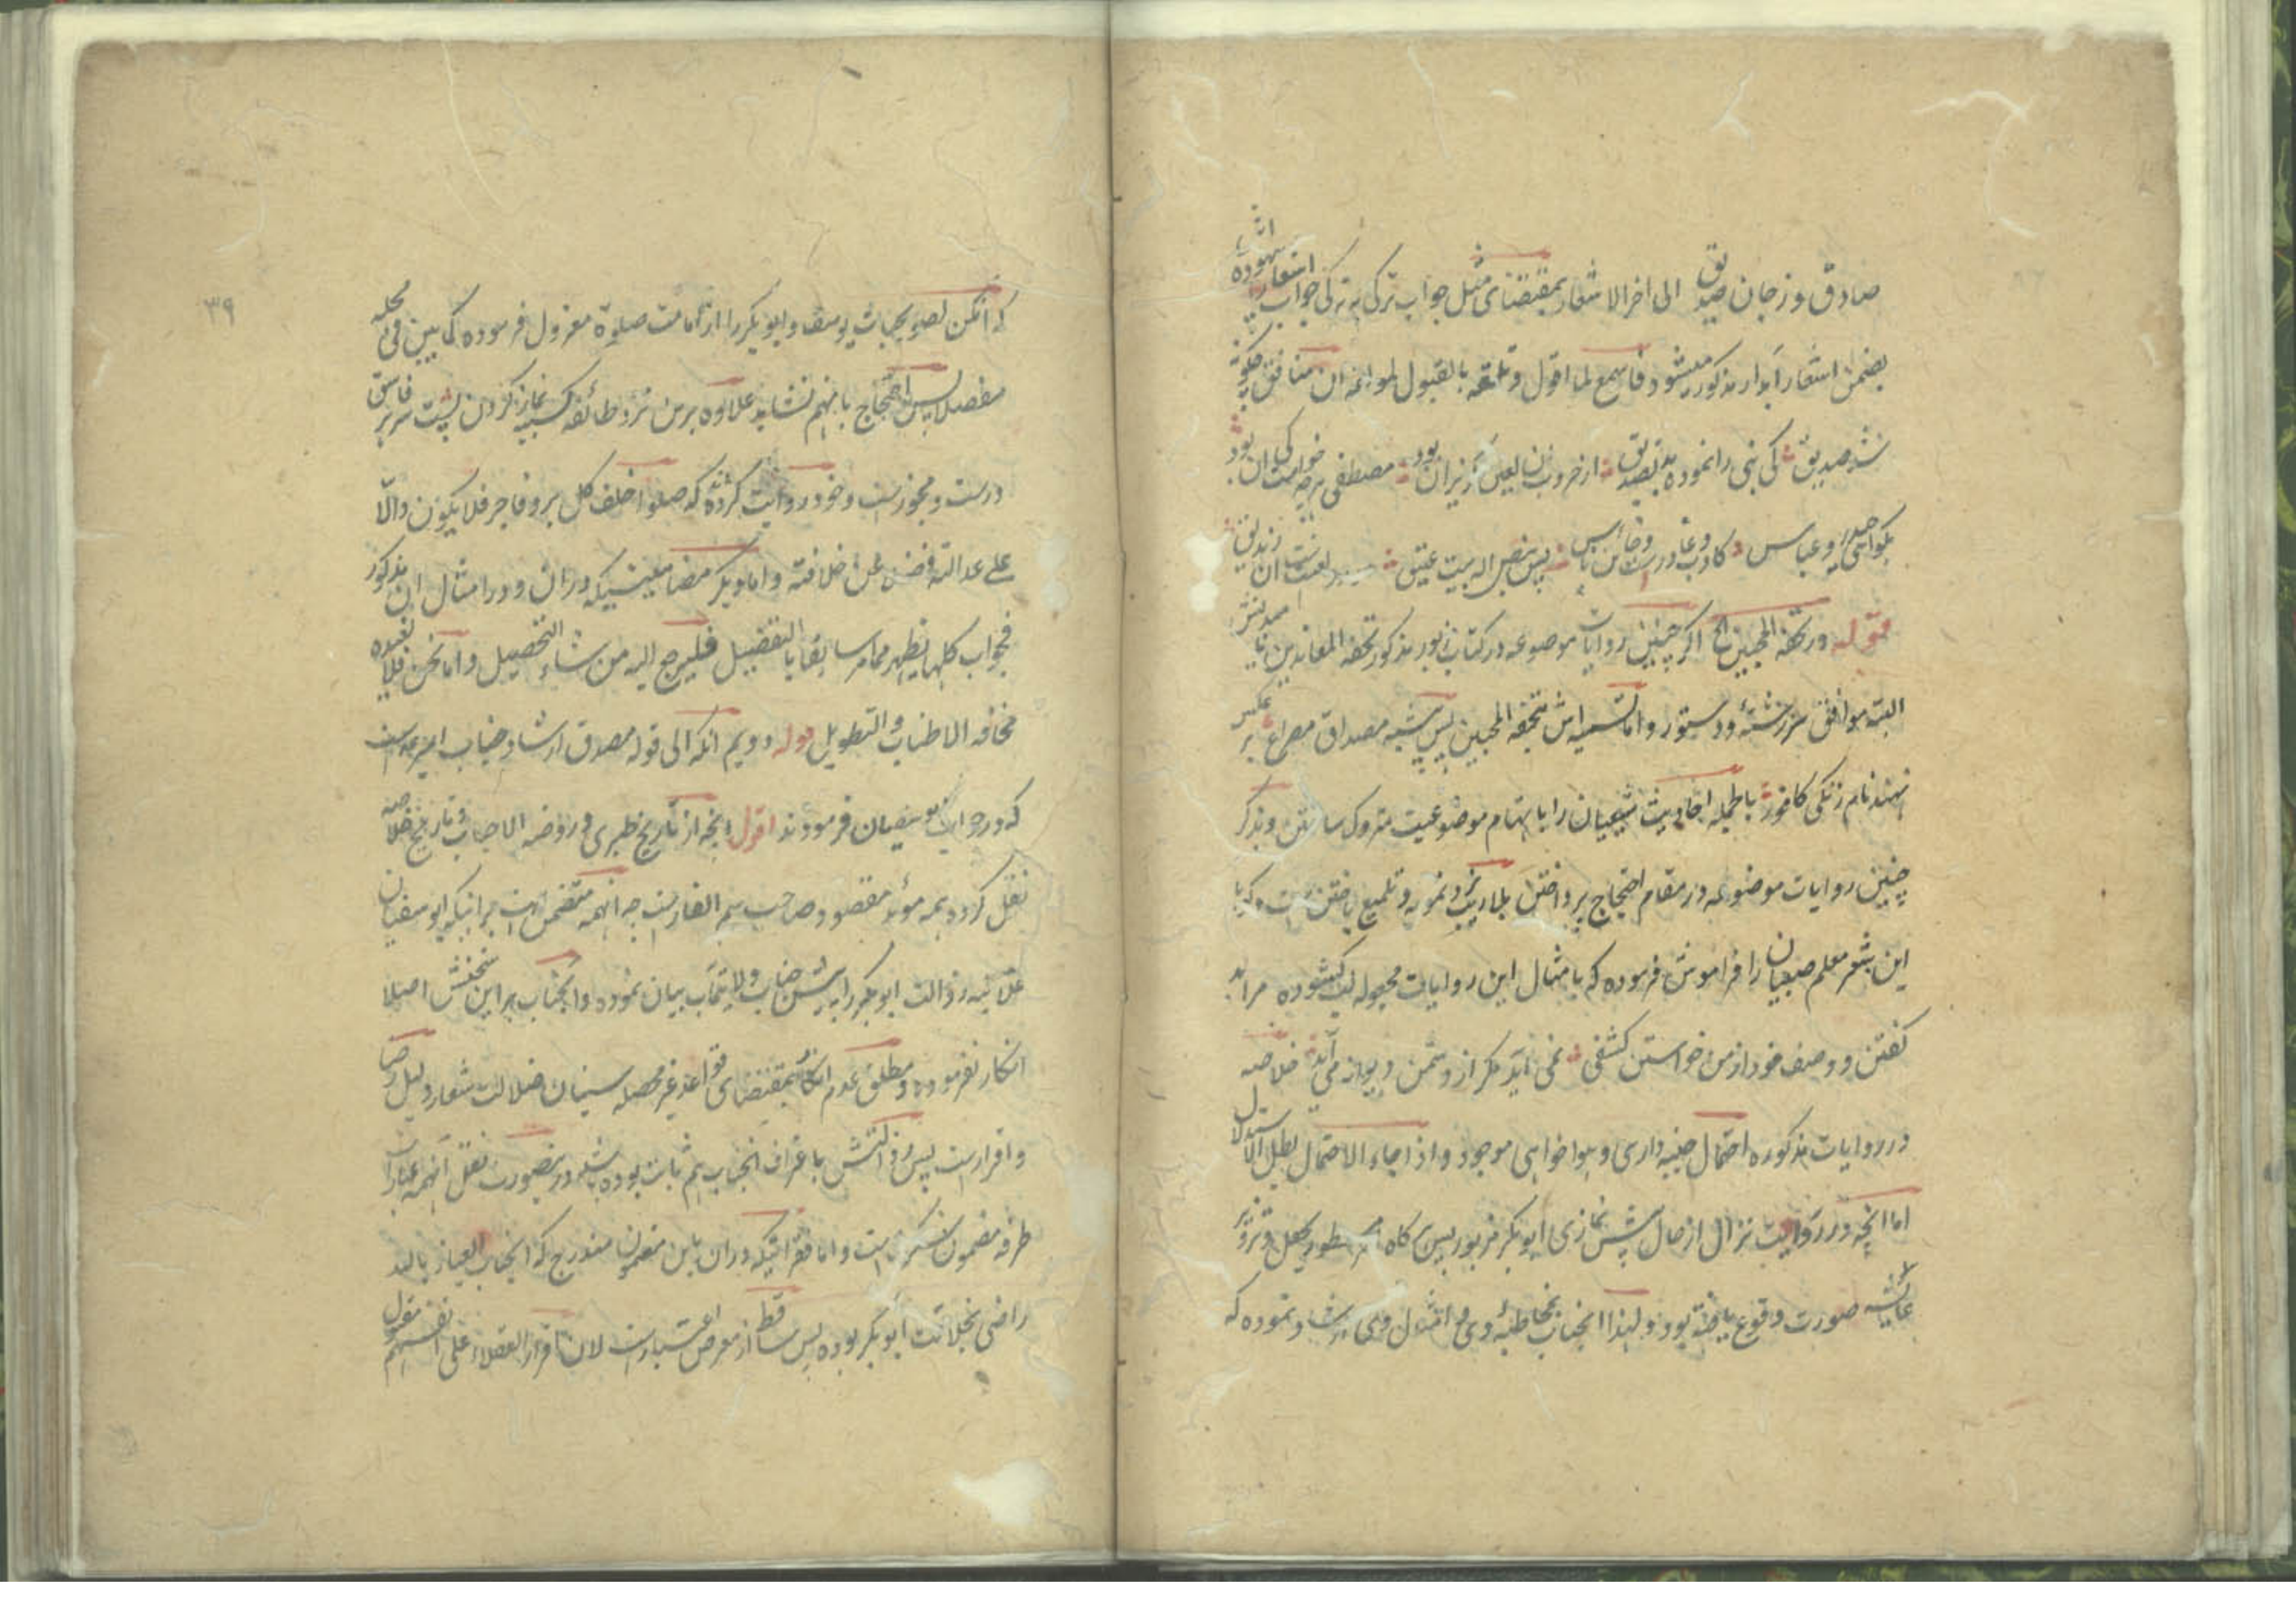 صادق وز جان صدیق الی اخر الاشعار بمقتضای مثل جواب ترکی به ترکی جواب اشعار
بضمن اشعار آبدار مذکور میشود فاسمع لما اقول وتلقه بالقبول لمولفه ان منافق چگونه
شد صدیق کی نبی را نموده بد تصدیق از خر و زن لعین بود مصطفی خواست کی ان بود
حیدر و عباس کاذب و غادرست و خائن پس بنص اله بیت عتیق لعنت ان زندیق
قوله در تحفة المحبین الخ اگر چنین روایات موضوعه در کتاب مزبور مذکور تحفة المعاندین
البته موافق سررشته و دستور و اما تسمیه اش بتحفة المحبین پس شبیه مصداق مصراع بر عکس
نهند نام زنگی کافور بالجمله احادیث شیعیان را باتهام موضوعیت متروک ساختن و بذکر
چنین روایات موضوعه در مقام احتجاج پرداختن بلا ریب و تلمیع یافتن است که با
این شعر معلم صبیان را فراموش فرموده که بامثال این روایات مجعوله لب گشوده مرا بد
گفتن و وصف خود از من خواستن کشفی نمی آید مگر از دشمن دیوانه می آید خلاصه
در روایات مذکوره احتمال جنبه داری و هواخواهی موجود و اذا جاء الاحتمال بطل الاستدلال
اما انچه در روایت نزال از حال پیش نمازی ابوبکر مزبور پس گاه بجعل و تزویر
عائشه صورت وقوع یافته بود و لهذا انجناب بخاطبه وی و امثال وی ارشاد نموده که
۳۹
که انکن لصویحبات یوسف و ابوبکر را از امامت صلوة معزول فرموده کما بین فی محله
مفصلا پس احتجاج بانهم نشاید علاوه برین نزد طائفه نماز کردن پشت سر هر فاسق
درست و مجوزست و خود روایت کرده اند که صلوا خلف کل بر و فاجر فلا یکون دالا
علی عدالته فضلا عن خلافته و اما دیگر مضامینیکه دران و در امثال ان مذکور
فجواب کلها یظهر مما مر سابقا بالتفصیل فلیرجع الیه من شاء التحصیل و اما نحن فلا نعیده
مخافة الاطناب والتطویل قوله دویم انکه الی قوله مصدق ارشاد جناب امیرست
که در جواب ابوسفیان فرمودند اقول انچه از تاریخ طبری و روضة الاحباب و تاریخ خلاصه
نقل کرده همه مؤید مقصود صاحب سهم الغارست چه انهمه متضمن است برانیکه ابوسفیان
علانیه رذالت ابوبکر را پیش جناب ولایتمآب بیان نموده و انجناب بر این سخنش اصلا
انکار نفرموده و مطلق عدم انکار بمقتضای قواعد غیر محصله سنیان ضلالت شعار دلیل رضا
و اقرارست پس رذالتش باعتراف انجناب هم ثابت بوده باشد درینصورت نقل انهمه عبارات
طرفه مضمون است و اما فقراتیکه دران باین مضمون مندرج که انجناب العیاذ بالله
راضی بخلافت ابوبکر بوده پس ساقط از معرض اعتبارست لان اقرار العقلاء علی انفسهم مقبول